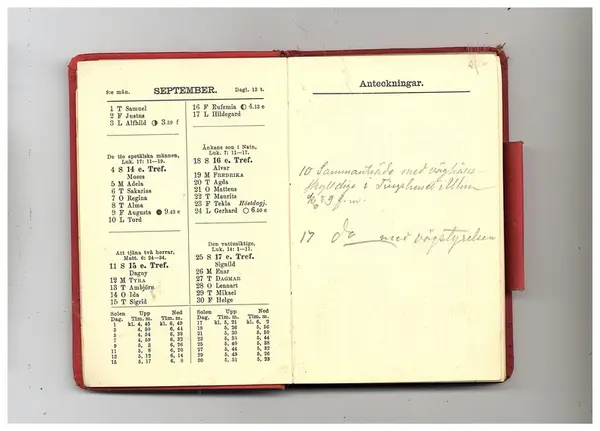 9:e mån. SEPTEMBER. Dagl. 13 t.
1 T Samuel
2 F Justus
3 L Alfhild 3.59 f
De tio spetälska männen,
Luk. 17: 11—19.
4 S 14 e. Tref.
Moses
5 M Adela
6 T Sakarias
7 O Regina
8 T Alma
9 F Augusta 9.43 e
10 L Tord
Att tjäna två herrar,
Matt. 6: 24—34.
11 S 15 e. Tref.
Dagny
12 M TYRA
13 T Ambjörn
14 O Ida
15 T Sigrid
16 F Eufemia 4.13 e
17 L Hildegard
Änkans son i Nain,
Luk. 7: 11—17.
18 S 16 e. Tref.
Alvar
19 M FREDRIKA
20 T Agda
21 O Matteus
22 T Maurits
23 F Tekla Höstdagj.
24 L Gerhard 6.50 e
Den vattusiktige,
Luk. 14: 1—11.
25 S 17 e. Tref.
Signild
26 M Enar
27 T DAGMAR
28 O Lennart
29 T Mikael
30 F Helge
Solen Upp Ned
Dag. Tim. m. Tim. m.
1 kl. 4, 45 kl. 6, 49
3 4, 50 6, 44
5 4, 54 6, 38
7 4, 59 6, 32
9 5, 3 6, 26
11 5, 8 6, 20
13 5, 12 6, 14
15 5, 17 6, 8
Solen Upp Ned
Dag. Tim. m. Tim. m.
17 kl. 5, 21 kl. 6, 2
19 5, 26 5, 56
21 5, 30 5, 50
23 5, 35 5, 44
25 5, 40 5, 38
27 5, 44 5, 32
29 5, 49 5, 26
30 5, 51 5, 23
Anteckningar.
10 Sammanträde med
skyldige i Tingshuset
f.m.
17 do med vägstyrelsen